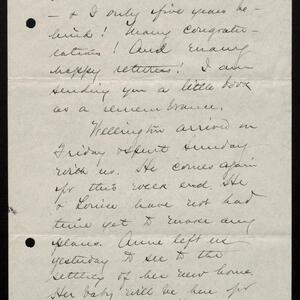 — & I only five years be-
hind! Many congratu-
lations! And many
happy returns! I am
sending you a little book
as a remembrance.
Wellington arrived on
Friday & spent Sunday
with us. He comes again
for this week end. He
& Louise have not had
time yet to make any
plans. Anne left us
yesterday to see to the
settling of her new home.
Her baby will be here for